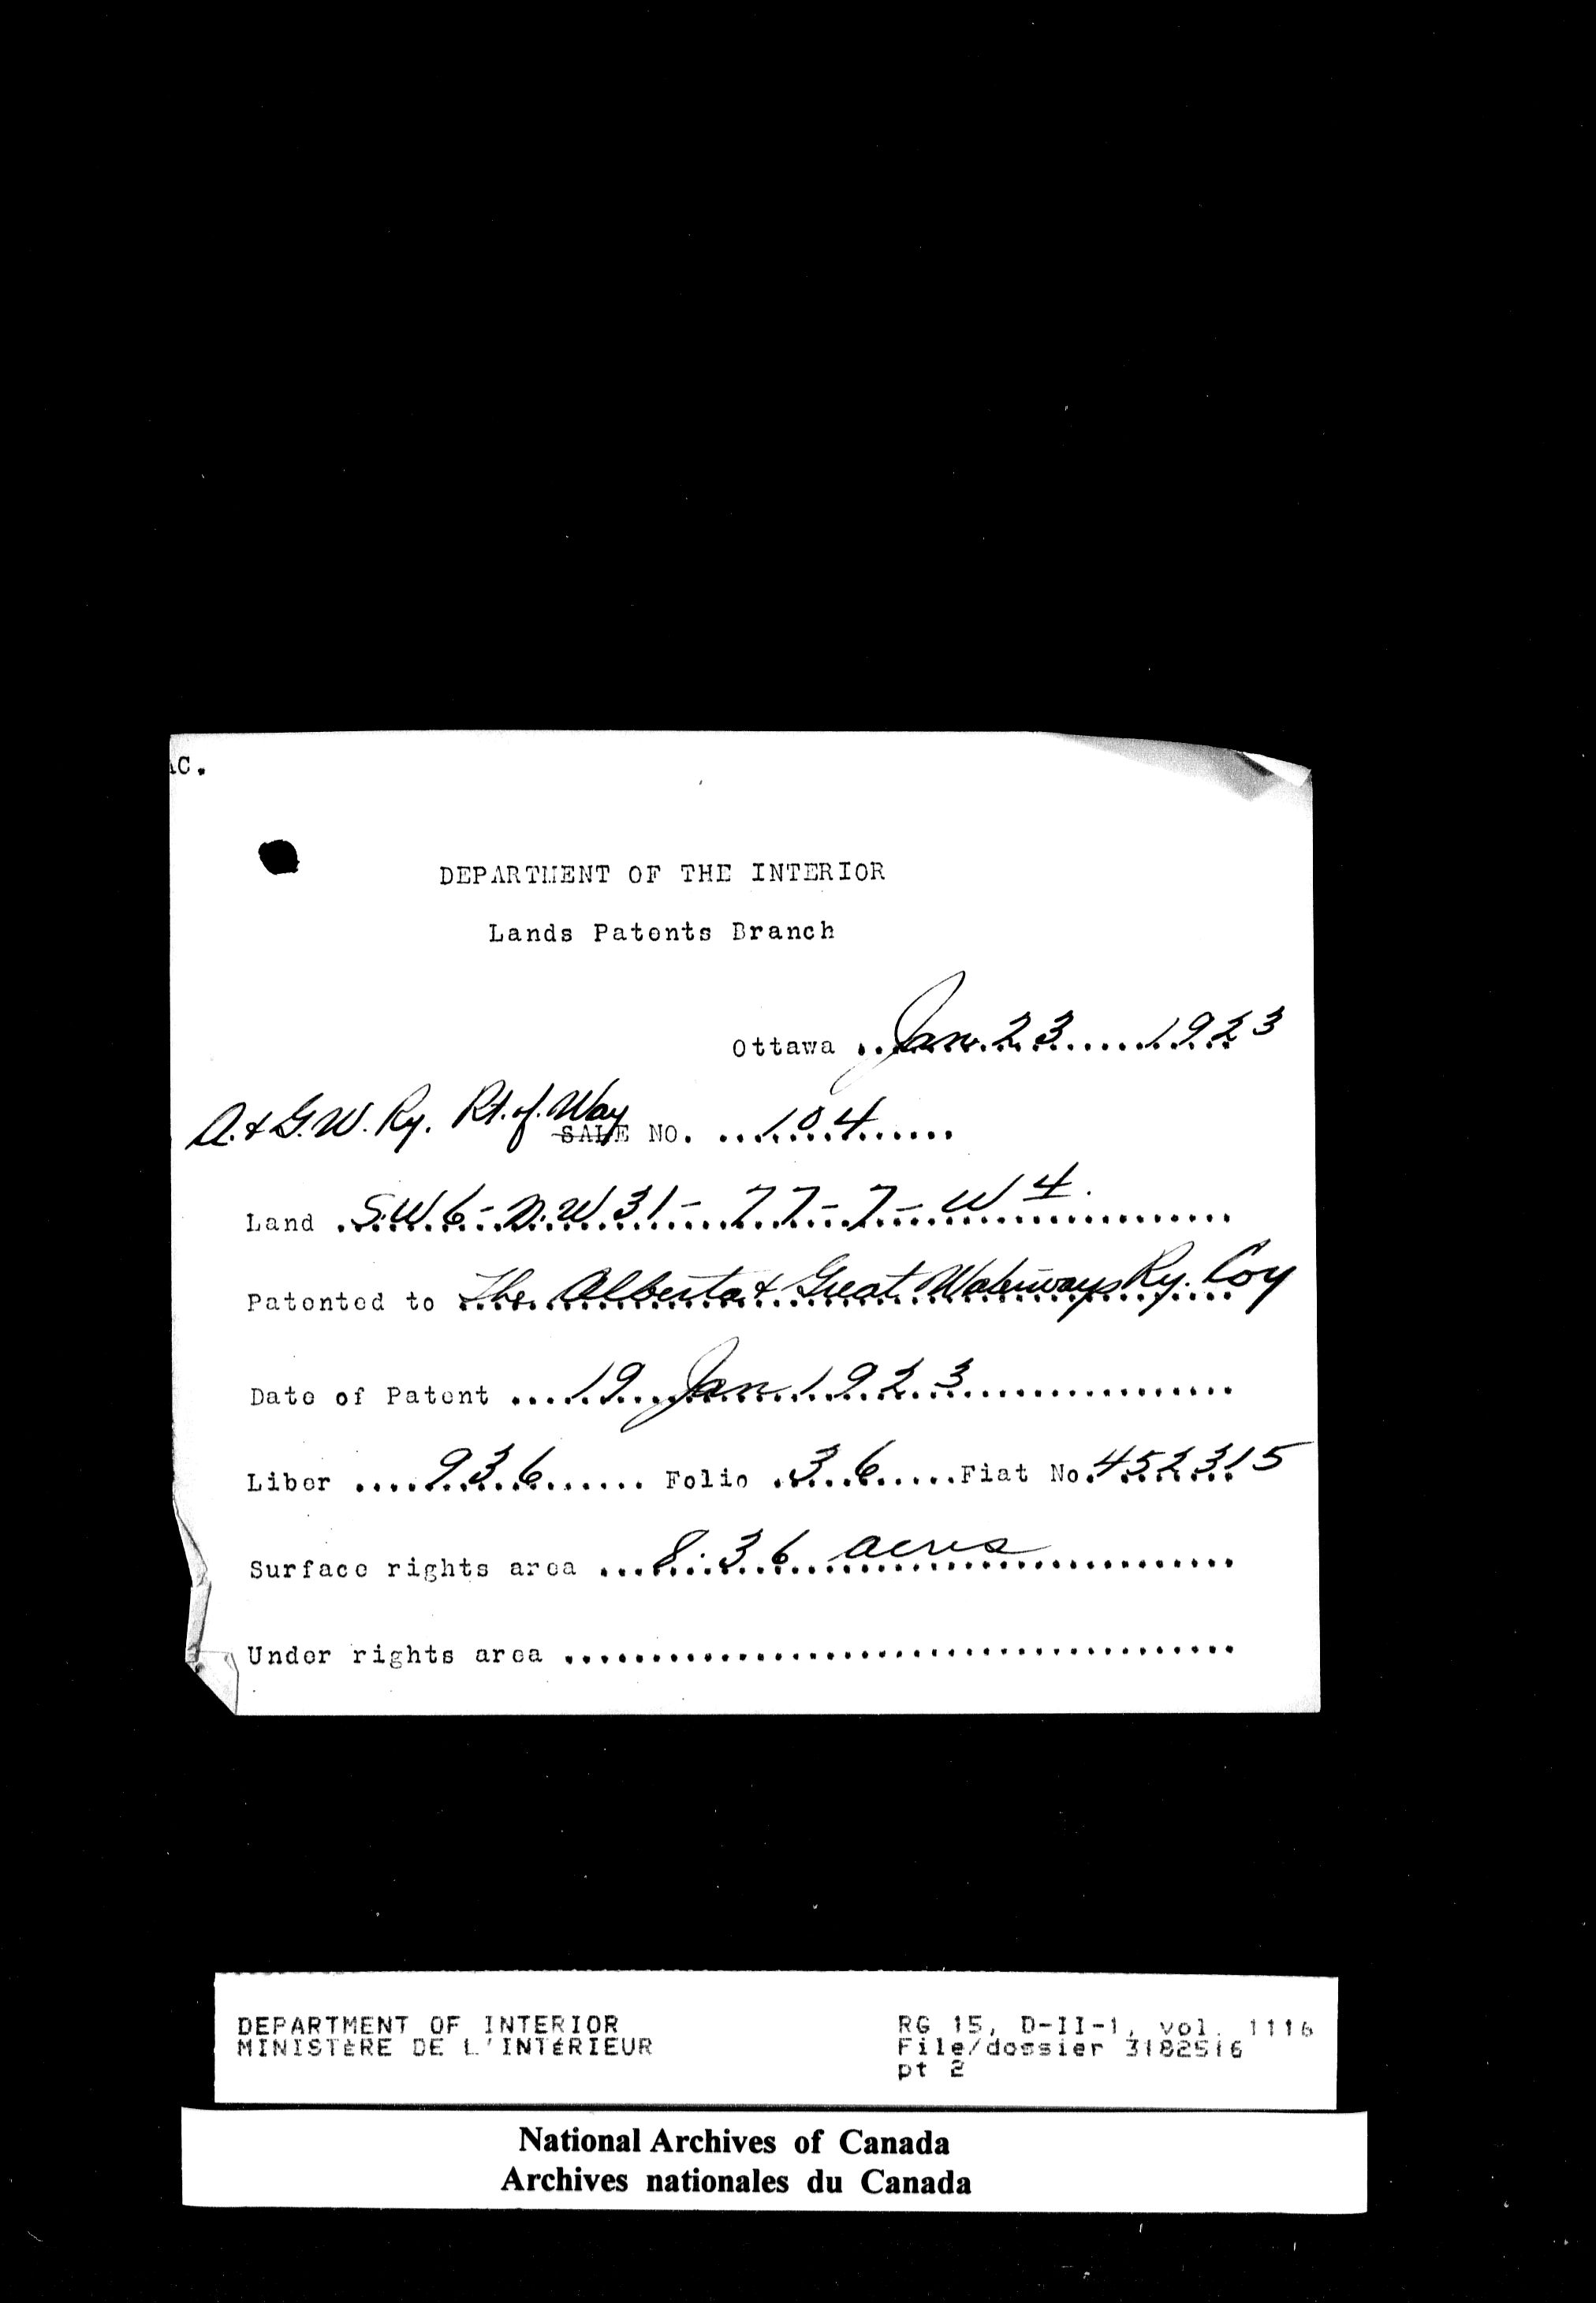 C.
DEPARTMENT OF THE INTERIOR
Lands Patents Branch
Ottawa ..Jan. 23.....1923
A. & G. W. Ry. Rt. of Way SALE NO. ...104......
Land .S.W 6 - N.W 31 - 77 - 7 - W 4.
Patented to The Alberta & Great Waterways Ry. Coy
Date of Patent ....19 Jan. 1923................
Liber ....936...... Folio .36.....Fiat No.452315
Surface rights area ...8.36 acres................
Under rights area .......................................
DEPARTMENT OF INTERIOR
MINISTÈRE DE L'INTÉRIEUR
RG 15, D-II-1, vol. 1116
File/dossier 3182516
pt 2
National Archives of Canada
Archives nationales du Canada